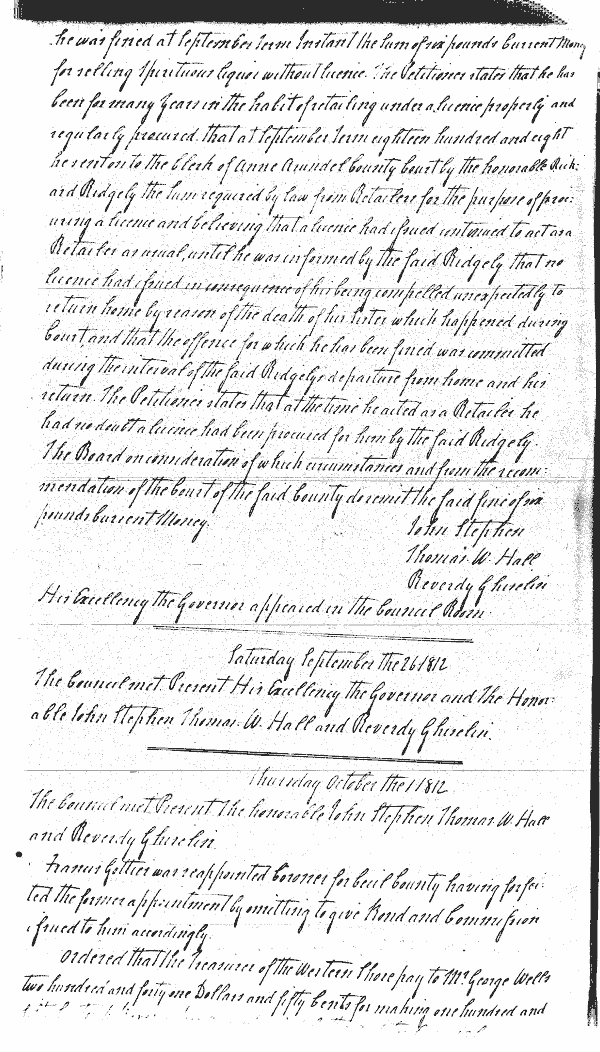 he was fined at September Term Instant the sum of six pounds Current Money
for selling Spirituous liquor without licence. The Petitioner states that he has
been for many Years in the habit of retailing under a licence properly and
regularly procured, that at September Term eighteen hundred and eight
he sent on to the Clerk of Anne Arundel County Court by the honorable Rich-
ard Ridgely the sum required by law from Retailers for the purpose of proc-
uring a licence and believing that a licence had issued continued to act as a
Retailer as usual, until he was informed by the said Ridgely that no
licence had issued in consequence of his being compelled unexpectedly to
return home by reason of the death of his sister which happened during
Court, and that the offence for which he has been fined was committed
during the interval of the said Ridgelys departure from home and his
return. The Petitioner states that at the time he acted as a Retailer he
had no doubt a licence had been procured for him by the said Ridgely.
The Board on consideration of which circumstances and from the recom-
mendation of the Court of the said County do remit the said fine of six
pounds Current Money.
John Stephen
Thomas W. Hall
Reverdy Ghiselin
His Excellency the Governor appeared in the Council Room.
Saturday September the 26 1812
The Council met. Present His Excellency the Governor and The Honor-
able John Stephen Thomas W. Hall and Reverdy Ghiselin.
Thursday October the 1 1812
The Council met. Present The honorable John Stephen Thomas W Hall
and Reverdy Ghiselin
Francis reappointed Coroner for Cecil County having forfei-
ted the former appointment by omitting to give Bond and Commission
issued to him accordingly.
Ordered that the Treasurer of the Western Shore pay to Mr. George Wells
two hundred and forty one Dollars and fifty Cents for making one hundred and